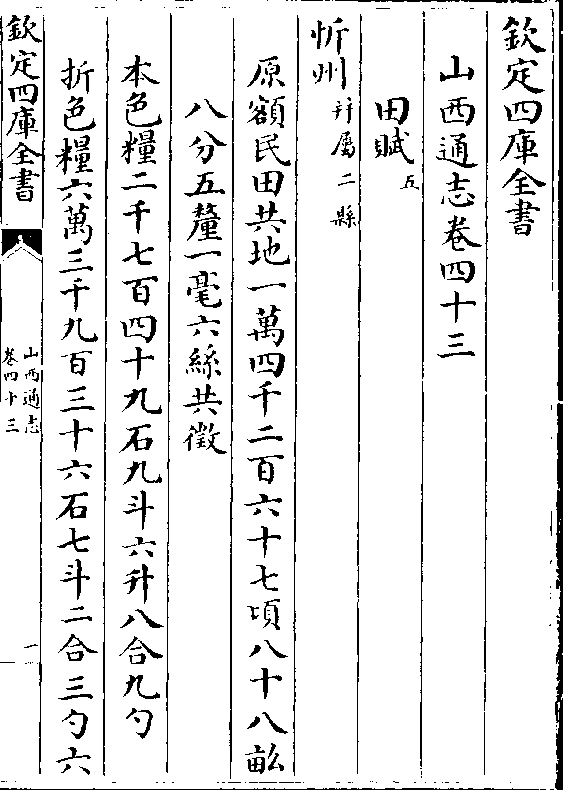 欽定四庫全書
山西通志卷四十三
田賦五
忻州并屬二縣
原額民田共地一萬四千二百六十七項八十八畝
八分五釐一毫六絲共徵
本色糧二千七百四十九石九斗六升八合九勺
折色糧六萬三千九百三十六石七斗二合三勺六
欽定四庫全書
山西通志
卷四十三
一